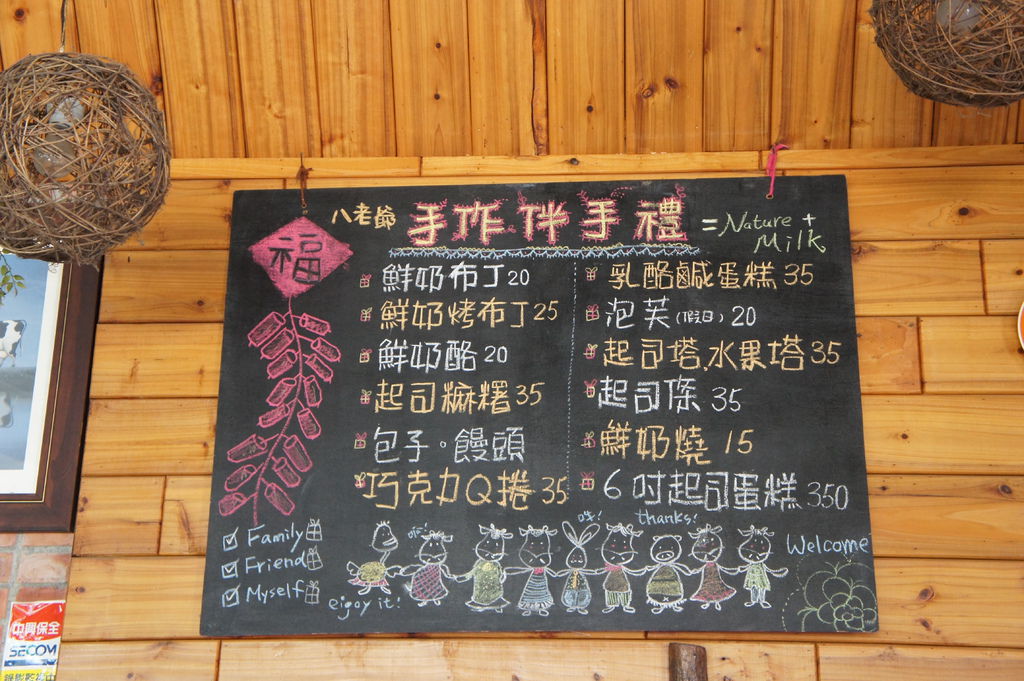 八老爺 手作伴手禮 = Nature + Milk
福
鮮奶布丁 20
鮮奶烤布丁 25
鮮奶酪 20
起司麻糬 35
包子。饅頭
巧克力Q捲 35
乳酪鹹蛋糕 35
泡芙(假日) 20
起司塔.水果塔 35
起司條 35
鮮奶燒 15
6吋起司蛋糕 350
Family
Friend
Myself
eigoy it!
thanks!
Welcome
中興保全
SECOM